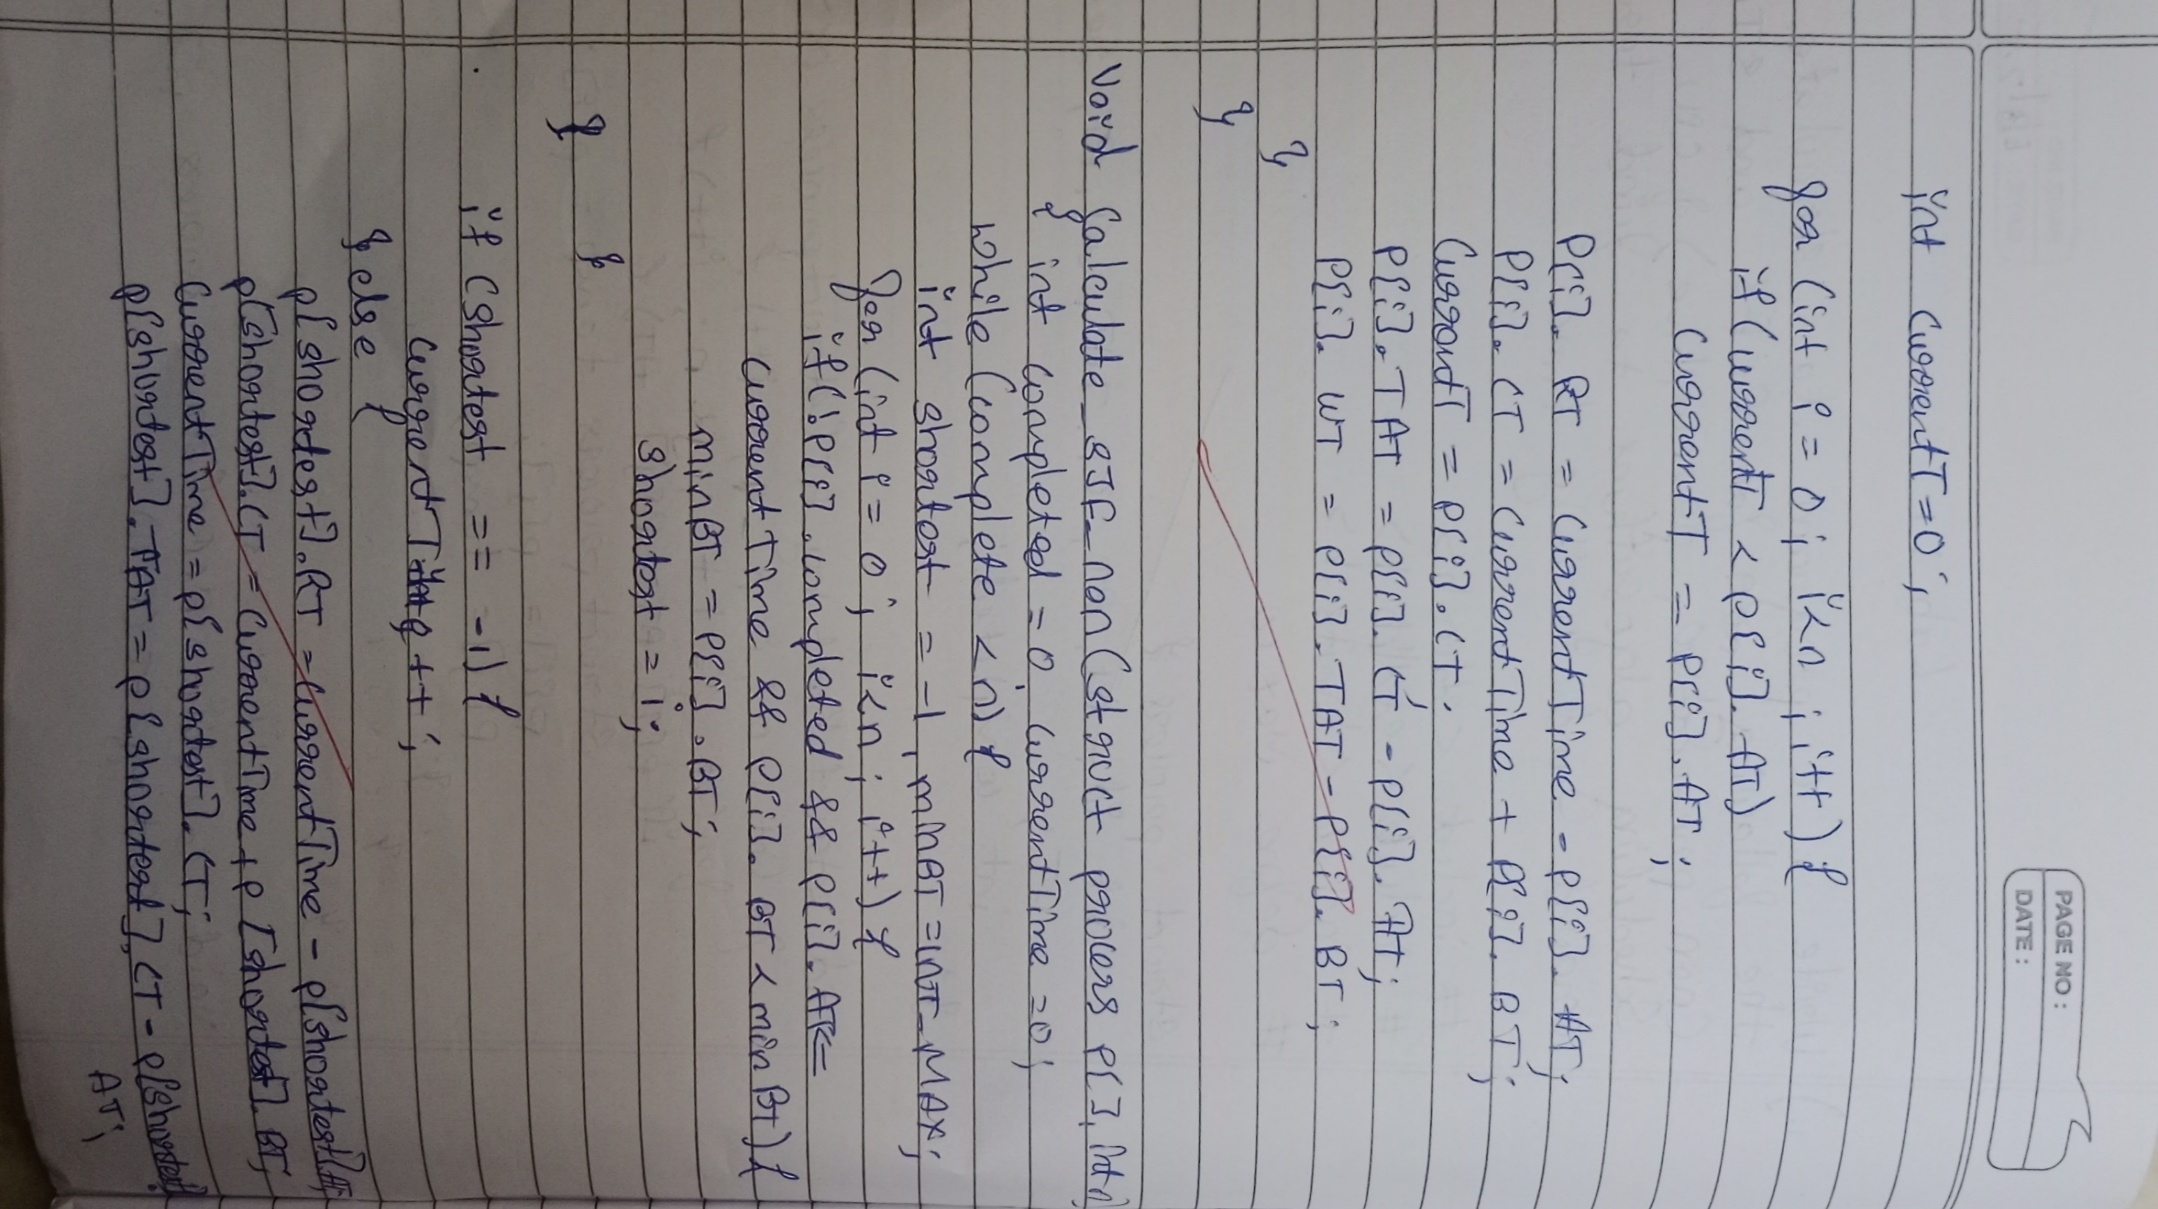 PAGE NO:
DATE:
int CurrentT=0;
for (int i = 0; i<n; i++) {
if (currentT < p[i].AT)
CurrentT = P[i].AT;
P[i].RT = CurrentTime - p[i].AT;
P[i].CT = CurrentTime + P[i].BT;
CurrentT = P[i].CT.
P[i].TAT = p[i].CT - p[i].AT;
P[i].WT = P[i].TAT - P[i].BT;
}
}
Void Calculate_SJF_non(struct process P[], int n)
{ int completed = 0, currentTime = 0;
while (complete < n) {
int shortest = -1, minBT = INT_MAX;
for (int i = 0; i<n; i++) {
if (!P[i].completed && P[i].AT<=
currentTime && P[i].BT < minBt) {
minBT = P[i].BT;
shortest = i;
}
}
if (shortest == -1) {
CurrentTime++;
} else {
p[shortest].RT = currentTime - p[shortest].AT
p[shortest].CT = CurrentTime + P[shortest].BT;
CurrentTime = p[shortest].CT;
p[shortest].TAT = p[shortest].CT - p[shortest].
AT;